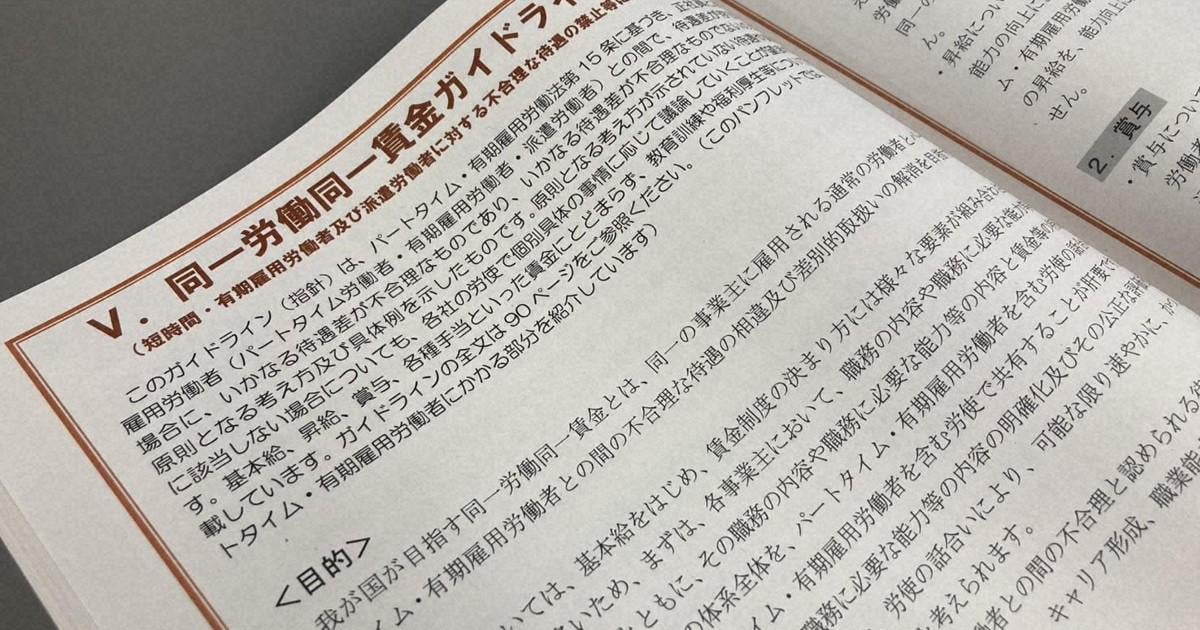 Ⅴ．同一労働同一賃金ガイドライ
（短時間・有期雇用労働者及び派遣労働者に対する不合理な待遇の禁止等に
このガイドライン（指針）は、パートタイム・有期雇用労働法第15条に基づき、正社
雇用労働者（パートタイム労働者・有期雇用労働者・派遣労働者）との間で、待遇差が
場合に、いかなる待遇差が不合理なものであり、いかなる待遇差が不合理なものでない
原則となる考え方及び具体例を示したものです。原則となる考え方が示されていない待遇
に該当しない場合についても、各社の労使で個別具体の事情に応じて議論していくことが
す。基本給、昇給、賞与、各種手当といった賃金にとどまらず、教育訓練や福利厚生等に
載しています。ガイドラインの全文は90ページをご参照ください。（このパンフレットでは
トタイム・有期雇用労働者にかかる部分を紹介しています）
＜目的＞
我が国が目指す同一労働同一賃金とは、同一の事業主に雇用される通常の労働者と
イム・有期雇用労働者との間の不合理な待遇の相違及び差別的取扱いの解消を目指
いては、基本給をはじめ、賃金制度の決まり方には様々な要素が組み合わ
いため、まずは、各事業主において、職務の内容や職務に必要な能力
ともに、その職務の内容や職務に必要な能力等の内容と賃金等の
の体系全体を、パートタイム・有期雇用労働者を含む労使の話
イム・有期雇用労働者を含む労使で共有することが肝要で
職務に必要な能力等の内容の明確化及びその公正な評価
労使の話合いにより、可能な限り速やかに、
も考えられます。
働者との間の不合理と認められる待
キャリア形成、職業能
同一の
ん。
・昇給につい
能力の向上に
ム・有期雇用労働
の昇給を、能力向上に
せん。
2．賞与
・賞与につい
労働者